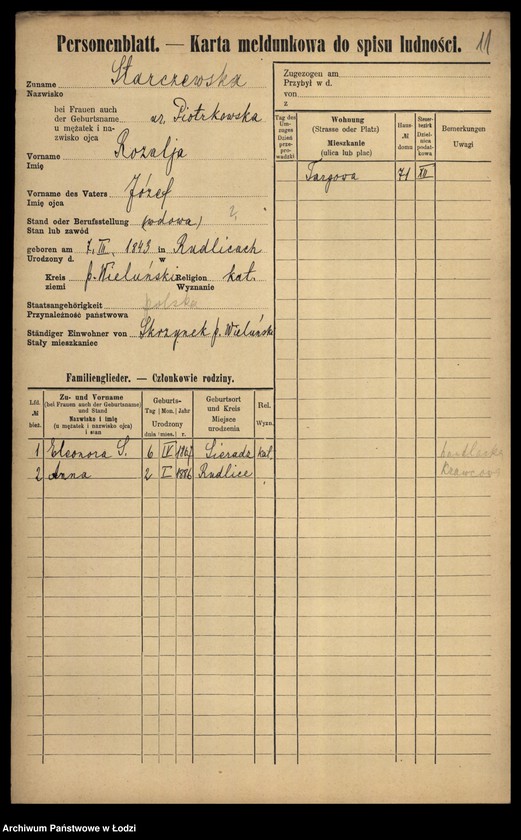 Personenblatt. — Karta meldunkowa do spisu ludności. 11
Zuname Starczewska
Nazwisko
bei Frauen auch
der Geburtsname
u mężatek i na-
zwisko ojca
ur. Piotrkowska
Vorname Rozalja
Imię
Vorname des Vaters Józef
Imię ojca
Stand oder Berufsstellung (wdowa)
Stan lub zawód
geboren am 7. III. 1843 in Rudlicach
Urodzony d. w
Kreis p. Wieluński Religion kat.
ziemi Wyznanie
Staatsangehörigkeit polska
Przynależność państwowa
Ständiger Einwohner von Skrzynek p. Wieluński
Stały mieszkaniec
Zugezogen am
Przybył w d.
von
z
Tag des Um-
zuges
Dzień
prze-
prowadzki
Wohnung
(Strasse oder Platz)
Mieszkanie
(ulica lub plac)
Haus-
№
domu
Steuer-
bezirk
Dziel-
nica
podat-
kowa
Bemerkungen
Uwagi
Targowa 71 XII
Familienglieder. — Członkowie rodziny.
Lfd.
№
bież.
Zu- und Vorname
(bei Frauen auch der Geburtsname)
und Stand
Nazwisko i imię
(u mężatek i nazwisko ojca)
i stan
Geburts-
Tag Mon. Jahr
Urodzony
dnia mies. r.
Geburtsort
und Kreis
Miejsce
urodzenia
Rel.
Wyzn.
1 Eleonora S. 6 IV Sieradz kat.
2 Anna 2 I 1886 Rudlice
Archiwum Państwowe w Łodzi